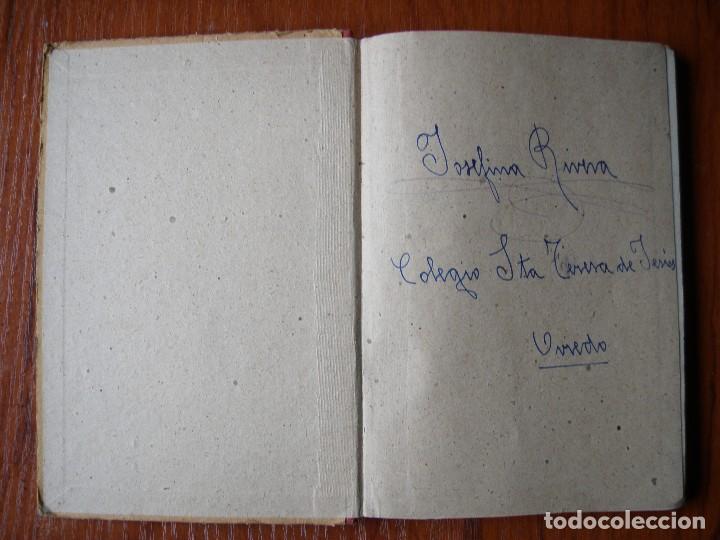 Josefina Rivera
Colegio Sta Teresa de Jesús
Oviedo
todocoleccion